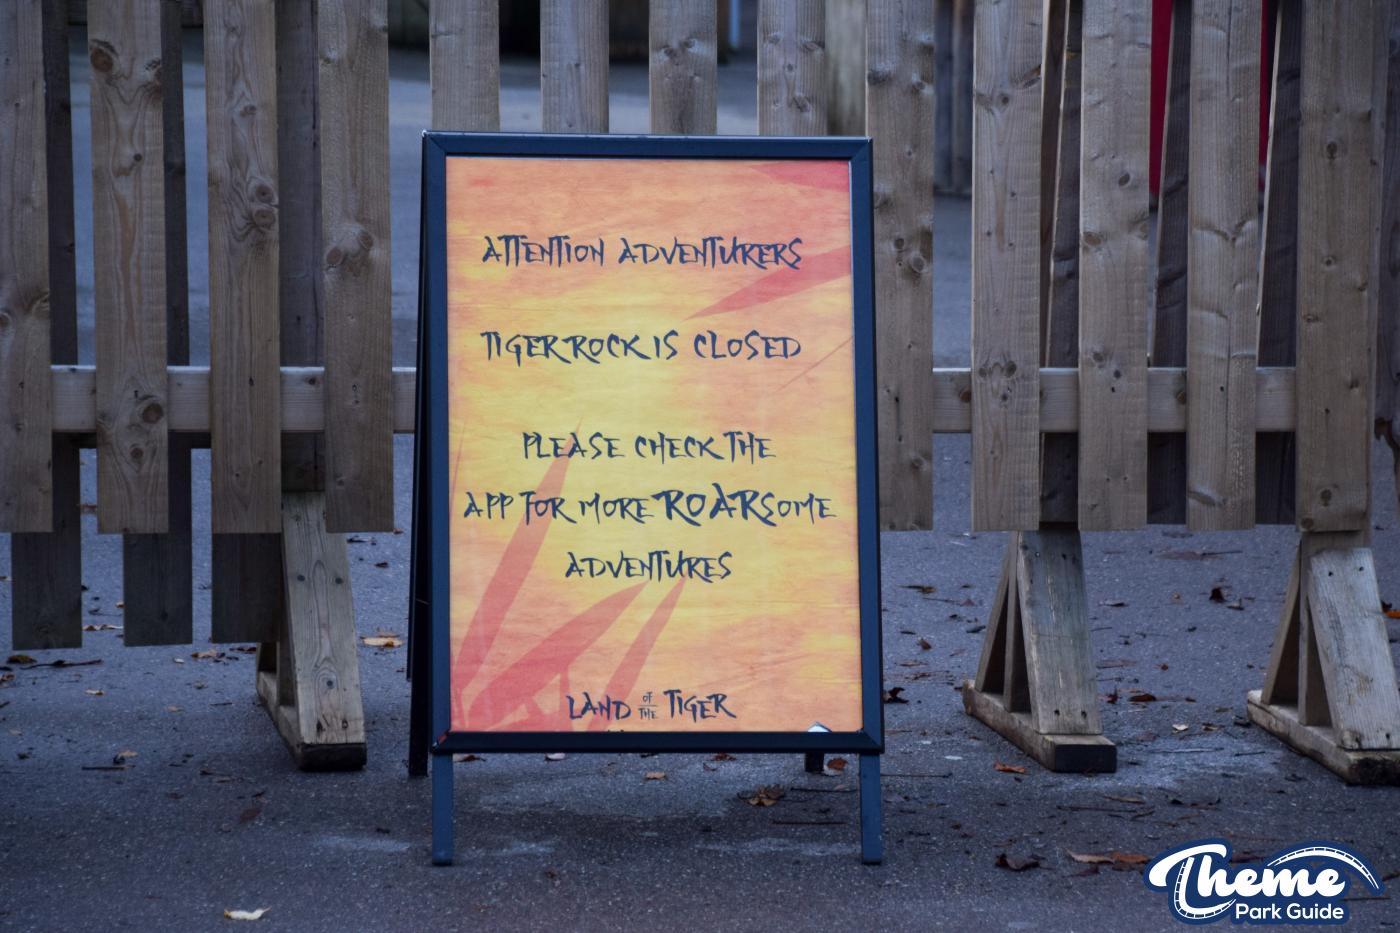 ATTENTION ADVENTURERS
TIGER ROCK IS CLOSED
PLEASE CHECK THE
APP FOR MORE ROARSOME
ADVENTURES
LAND OF THE TIGER
Theme
Park Guide